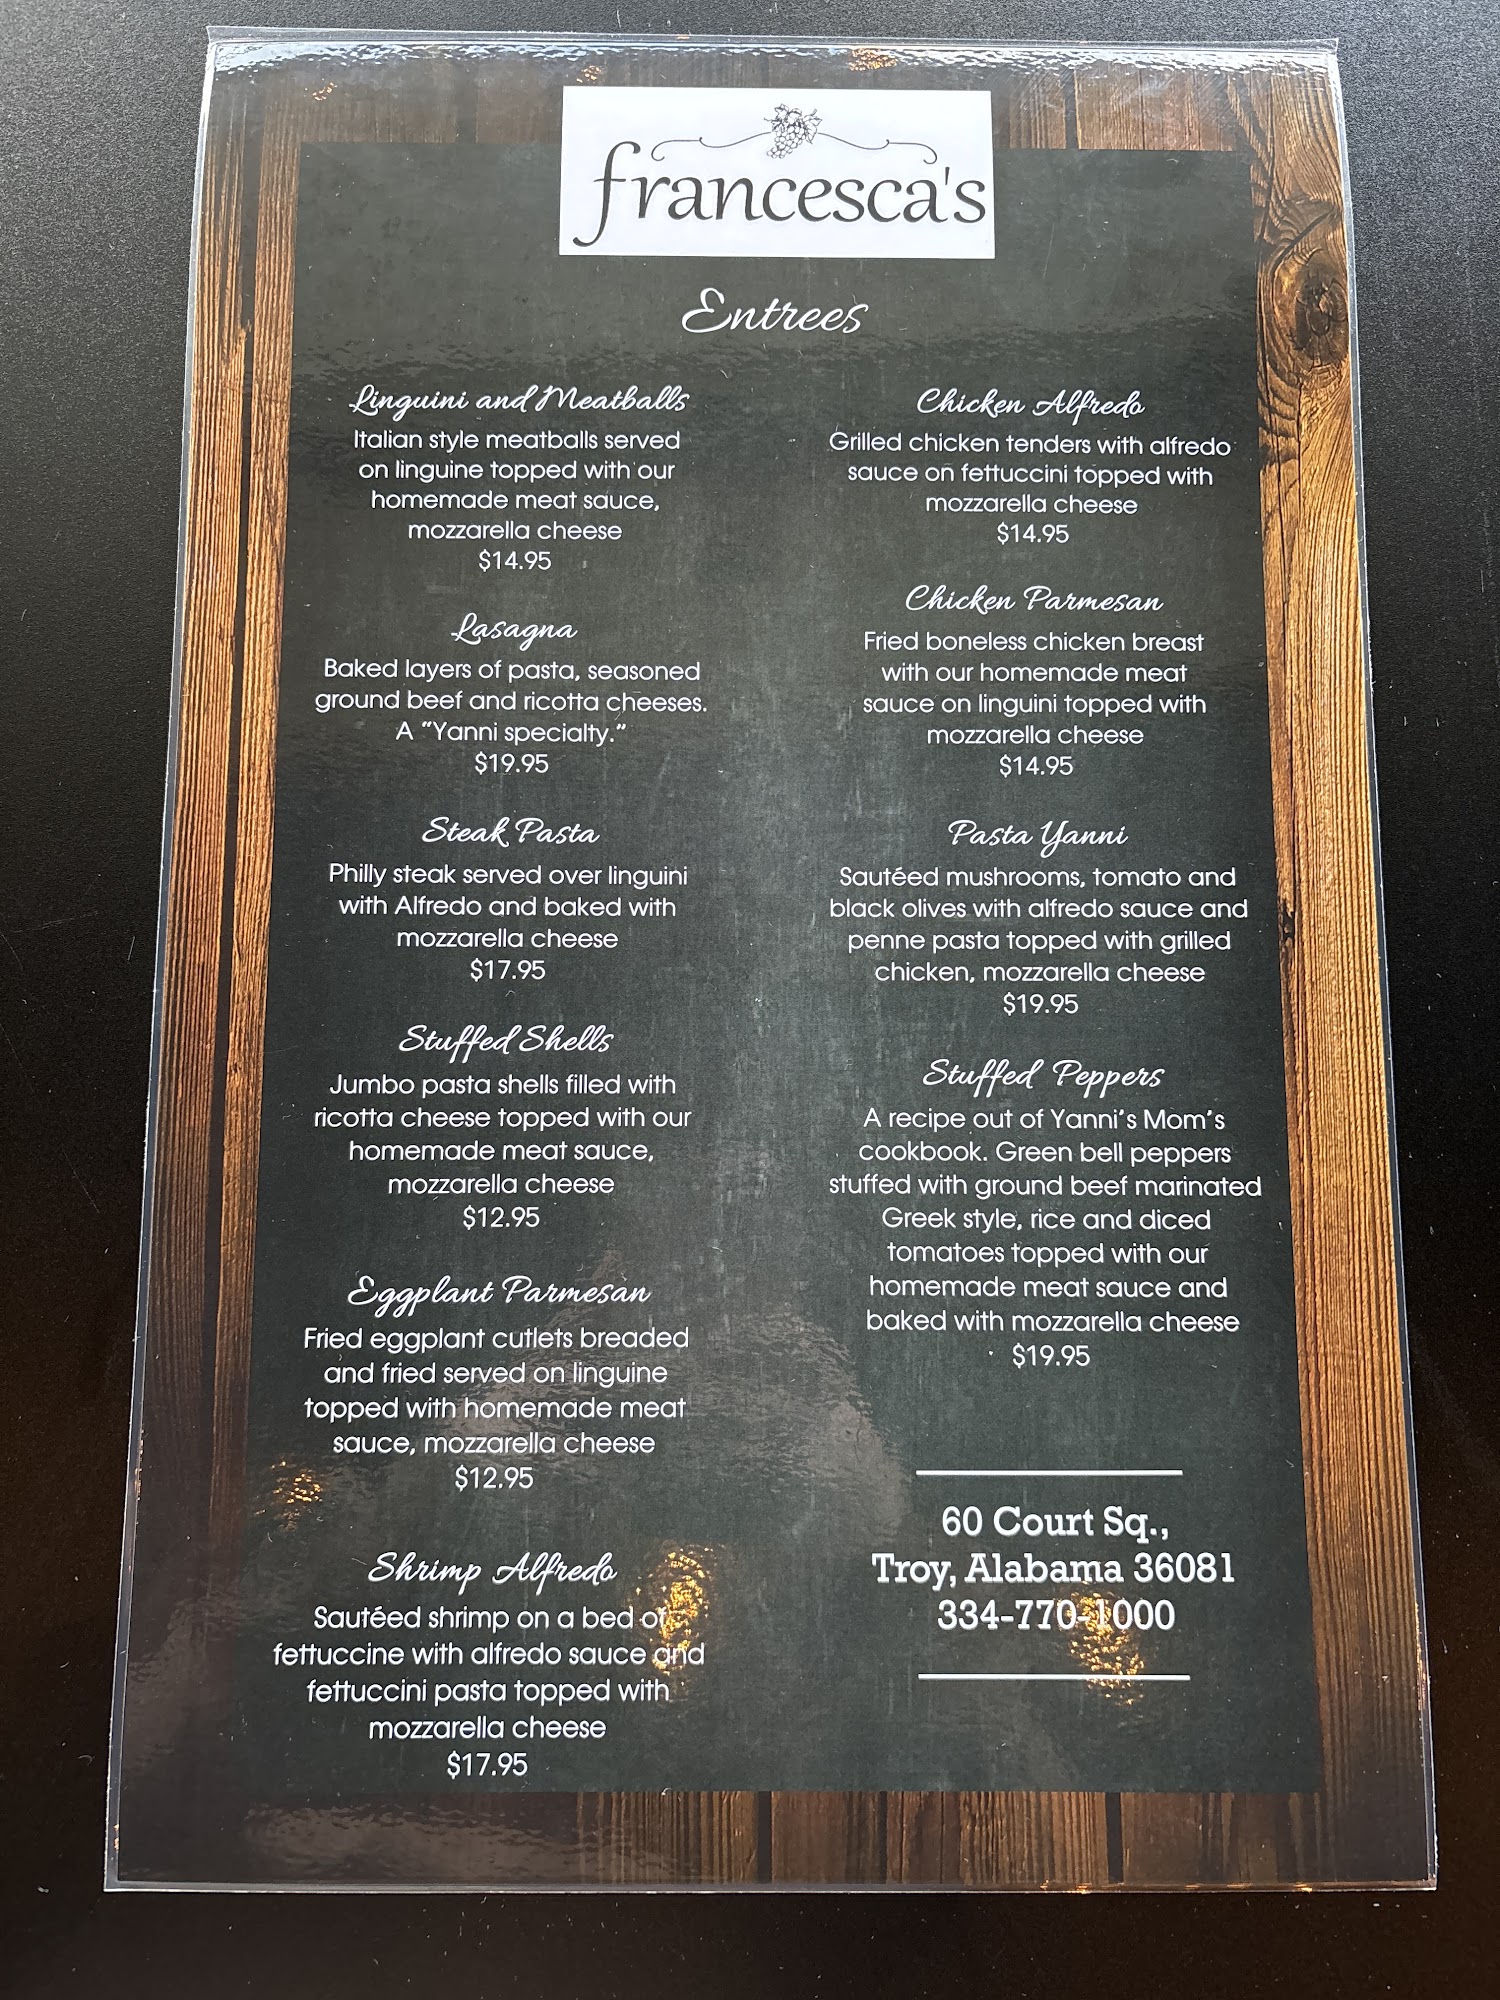 francesca's
Entrees
Linguini and Meatballs
Italian style meatballs served
on linguine topped with our
homemade meat sauce,
mozzarella cheese
$14.95
Lasagna
Baked layers of pasta, seasoned
ground beef and ricotta cheeses.
A "Yanni specialty."
$19.95
Steak Pasta
Philly steak served over linguini
with Alfredo and baked with
mozzarella cheese
$17.95
Stuffed Shells
Jumbo pasta shells filled with
ricotta cheese topped with our
homemade meat sauce,
mozzarella cheese
$12.95
Eggplant Parmesan
Fried eggplant cutlets breaded
and fried served on linguine
topped with homemade meat
sauce, mozzarella cheese
$12.95
Shrimp Alfredo
Sautéed shrimp on a bed of
fettuccine with alfredo sauce and
fettuccini pasta topped with
mozzarella cheese
$17.95
Chicken Alfredo
Grilled chicken tenders with alfredo
sauce on fettuccini topped with
mozzarella cheese
$14.95
Chicken Parmesan
Fried boneless chicken breast
with our homemade meat
sauce on linguini topped with
mozzarella cheese
$14.95
Pasta Yanni
Sautéed mushrooms, tomato and
black olives with alfredo sauce and
penne pasta topped with grilled
chicken, mozzarella cheese
$19.95
Stuffed Peppers
A recipe out of Yanni's Mom's
cookbook. Green bell peppers
stuffed with ground beef marinated
Greek style, rice and diced
tomatoes topped with our
homemade meat sauce and
baked with mozzarella cheese
$19.95
60 Court Sq.,
Troy, Alabama 36081
334-770-1000